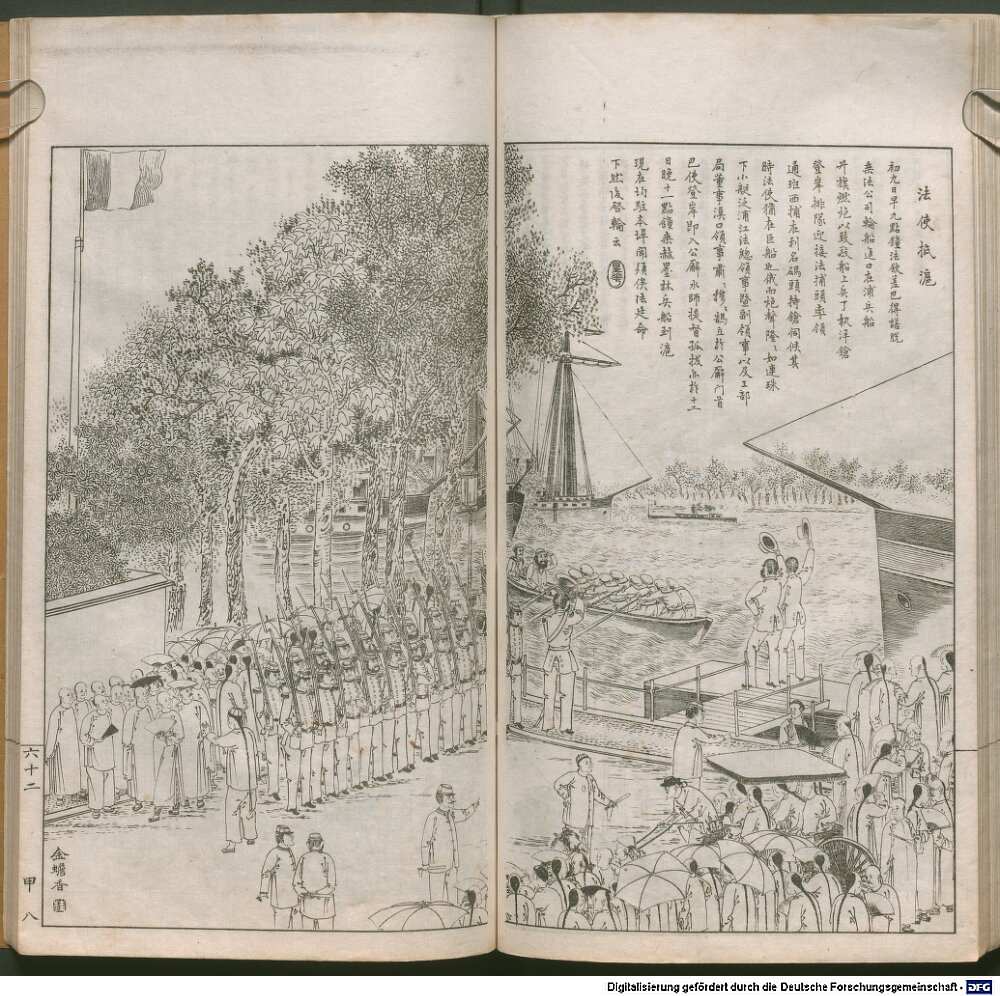 法使抵滬
初九日早九點鐘法欽差巴得諾脫
乘法公司輪船進口在浦兵船
升旗燃炮以致敬船上兵丁執洋鎗
登岸排隊迎接法捕頭率領
通班西捕在利名碼頭持鎗伺候其
時法使猶在巨船也俄而炮聲隆隆如連珠
下小艇泛浦江法總領事暨副領事以及工部
局董事漢口領事肅肅穆穆鵠立於公廨門首
巴使登岸即入公廨水師提督孤拔亦於十二
日晚十一點鐘乘赫墨林兵船到滬
現在均駐本埠聞須俟法廷命
下然後啓輪云
六十二
金蟾香
甲
八
Digitalisierung gefördert durch die Deutsche Forschungsgemeinschaft - DFG